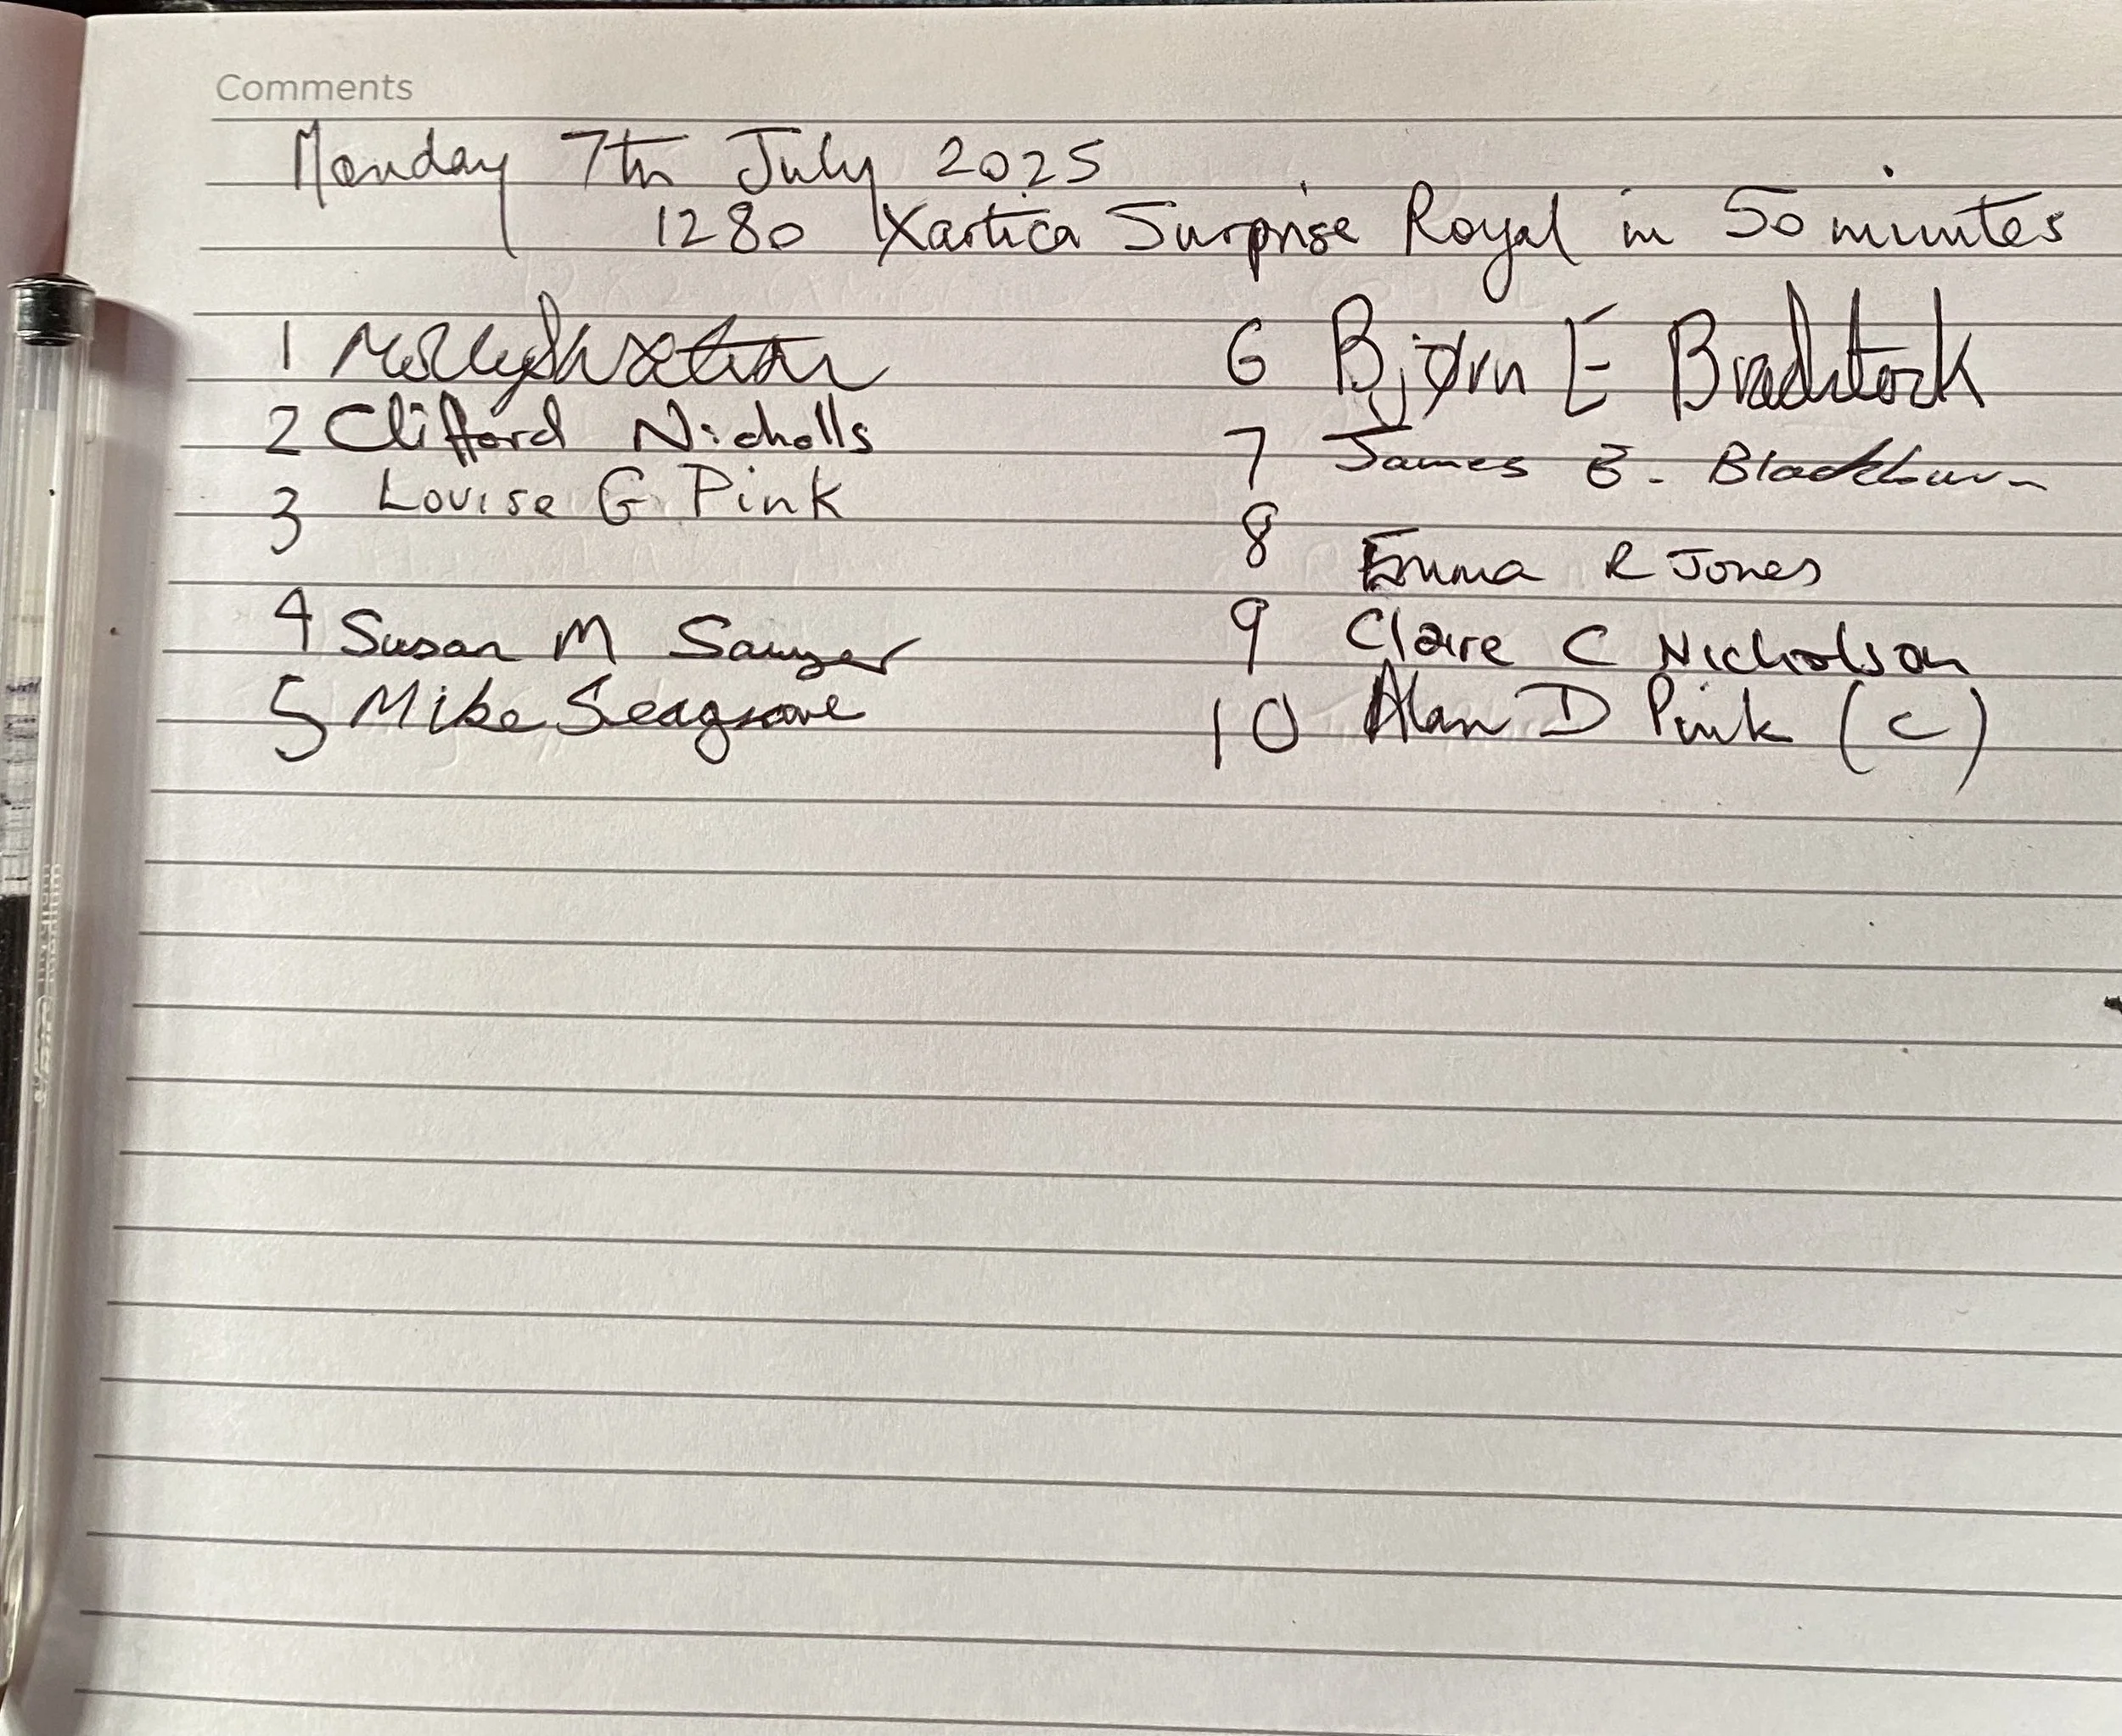 Comments
Monday 7th July 2025
1280 Xartica Surprise Royal in 50 minutes
1 Molly
2 Clifford Nicholls
3 Louise G Pink
4 Susan M Sawyer
5 Mike Seagrave
6 Bjørn E Bradstock
7 James E. Blackburn
8 Emma R Jones
9 Claire C Nicholson
10 Alan D Pink (C)